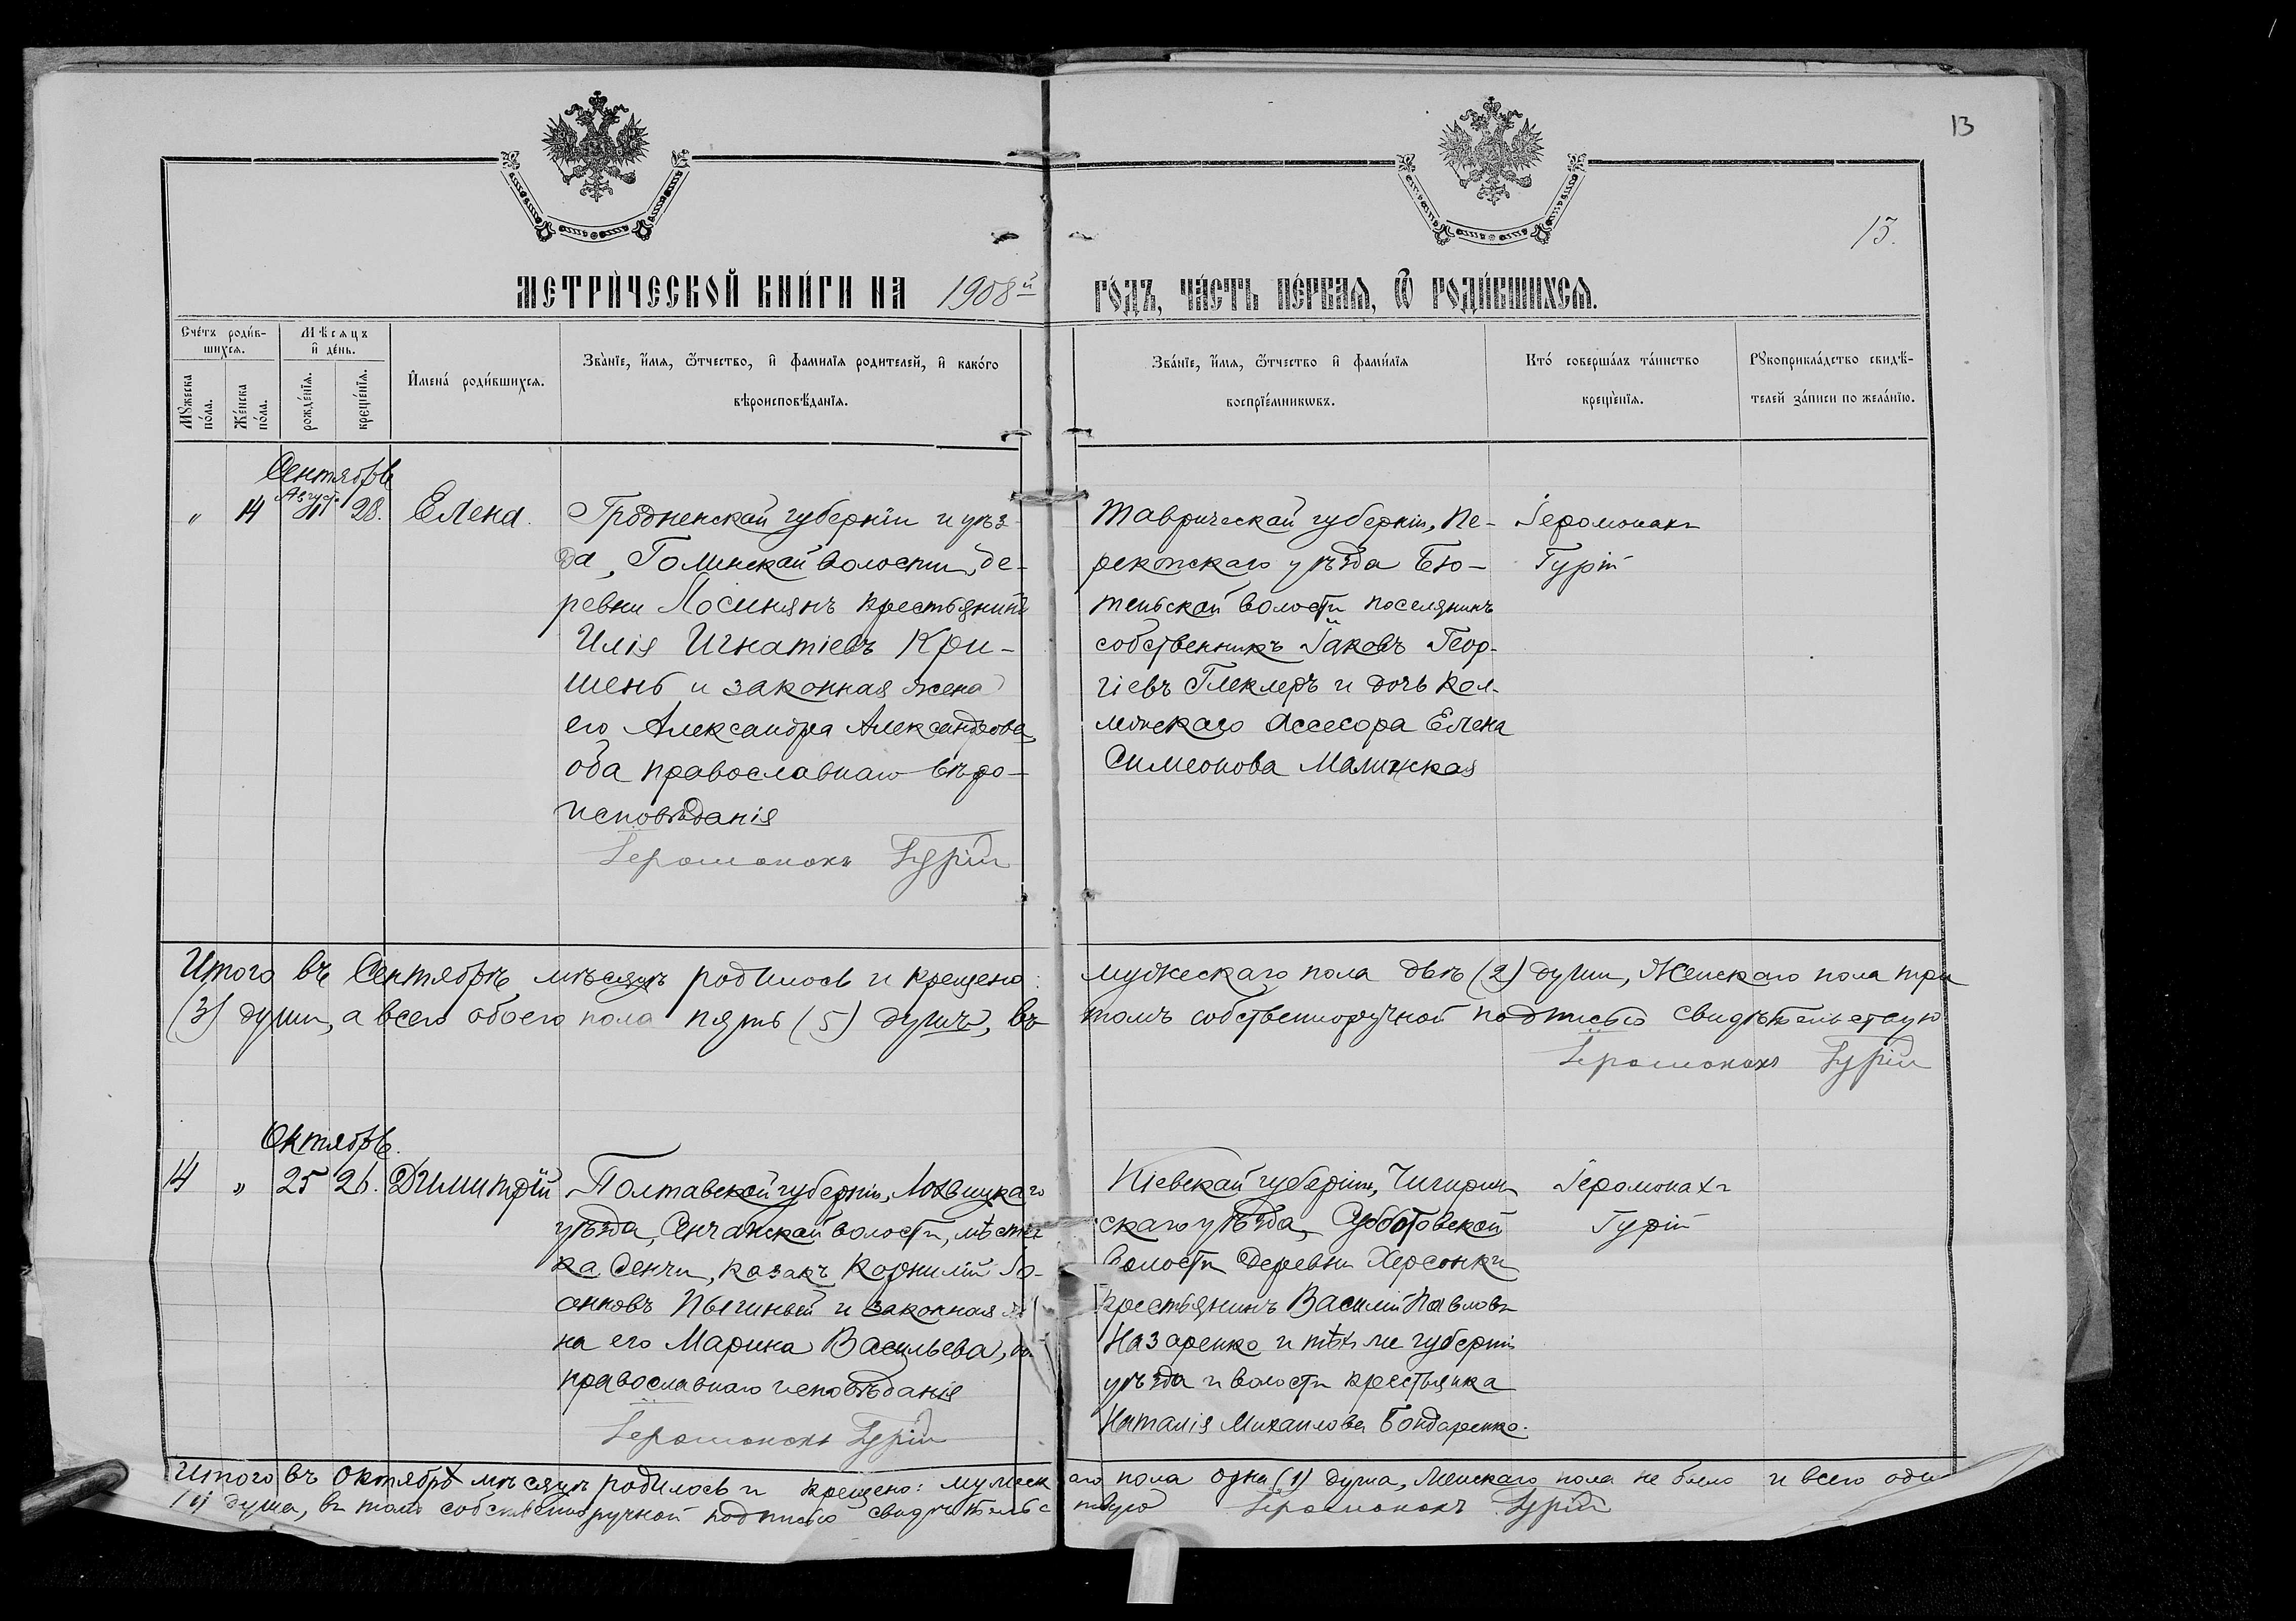 13
13.
МЕТРИ́ЧЕСКОЙ КНИ́ГИ НА 1908й ГО́ДЪ, ЧА́СТЬ ПЕ́РВАЯ, Ѿ РОДИ́ВШИХСЯ.
Сче́тъ роди́в-
шихся.
Мѣсяцъ
и де́нь.
Мꙋжеска по́ла.
Же́нска по́ла.
рожде́нїя.
креще́нїя.
Имена́ роди́вшихся.
Зва́нїе, и́мя, ѻтчество, и фамилїя родителей, и како́го
вѣроисповѣ́данїя.
Зва́нїе, и́мя, ѻтчество и фами́лїя
воспрїе́мникѡвъ.
Кто́ соверша́лъ та́инство
креще́нїя.
Рꙋкоприкла́дство свидѣ́-
телей за́писи по жела́нїю.
Сентябрь
Август.
" 14 28. Елена.
Гродненской губернiи и уѣз-
да, Голынской волости, де-
ревни Лосинянъ крестьянинъ
Илiя Игнатiевъ Кри-
шень и законная жена
его Александра Александрова,
оба православнаго вѣро-
исповѣданiя
Iеромонахъ Гурiй
Таврической губернiи, Пе-
рекопскаго уѣзда Бю-
теньской волости поселянинъ
собственникъ Iаковъ Геор-
гiевъ Глеклеръ и дочь Кол-
лежскаго Ассесора Елена
Симеонова Малинская
Iеромонахъ
Гурiй
Итого въ Сентябрѣ мѣсяцѣ родилось и крещено: мужескаго пола двѣ (2) души, Женскаго пола три
(3) души, а всего обоего пола пять (5) душъ, въ томъ собственноручной подписью свидѣтельствую
Iеромонахъ Гурiй
Октябрь.
14 " 25 26. Димитрiй
Полтавской губернiи, Лохвицкаго
уѣзда, Сенчанской волости, мѣстеч-
ка Сенчи, казакъ Корнилiй Iо-
анновъ и законная же-
на его Марина Васильева,
православнаго исповѣданiя
Iеромонахъ Гурiй
Кiевской губернiи, Чигирин
скаго уѣзда, Субботовской
волости деревни Херсонки
крестьянинъ Василiй Павловъ
Назаренко и тѣхъ же губернiи
уѣзда и волости крестьянка
Наталiя Михаилова Бондаренко.
Iеромонахъ
Гурiй
Итого въ Октябрѣ мѣсяцѣ родилось и крещено: мужескаго пола одна (1) душа, Женскаго пола не было и всего одна
(1) душа, въ томъ собственноручной подписью свидѣтельствую Iеромонахъ Гурiй